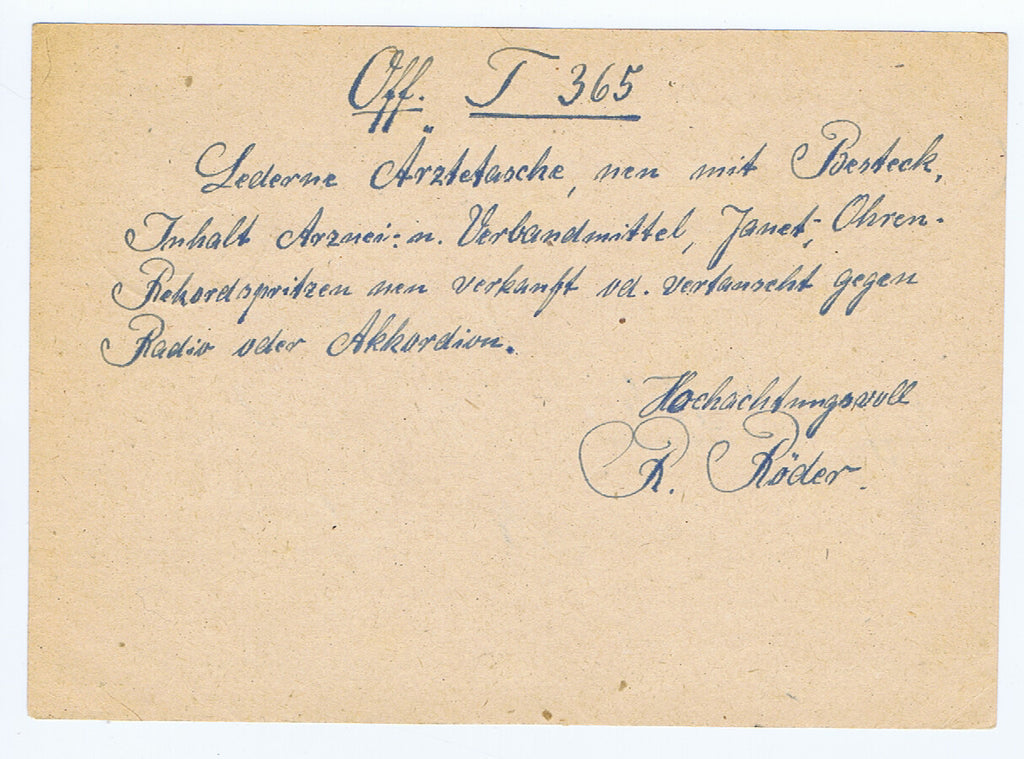 Off. T 365
Lederne Ärztetasche, neu mit Besteck,
Inhalt Arznei- u. Verbandmittel, Janet-, Ohren-
Rekordspritzen neu verkauft od. vertauscht gegen
Radio oder Akkordion.
Hochachtungsvoll
R. Röder.